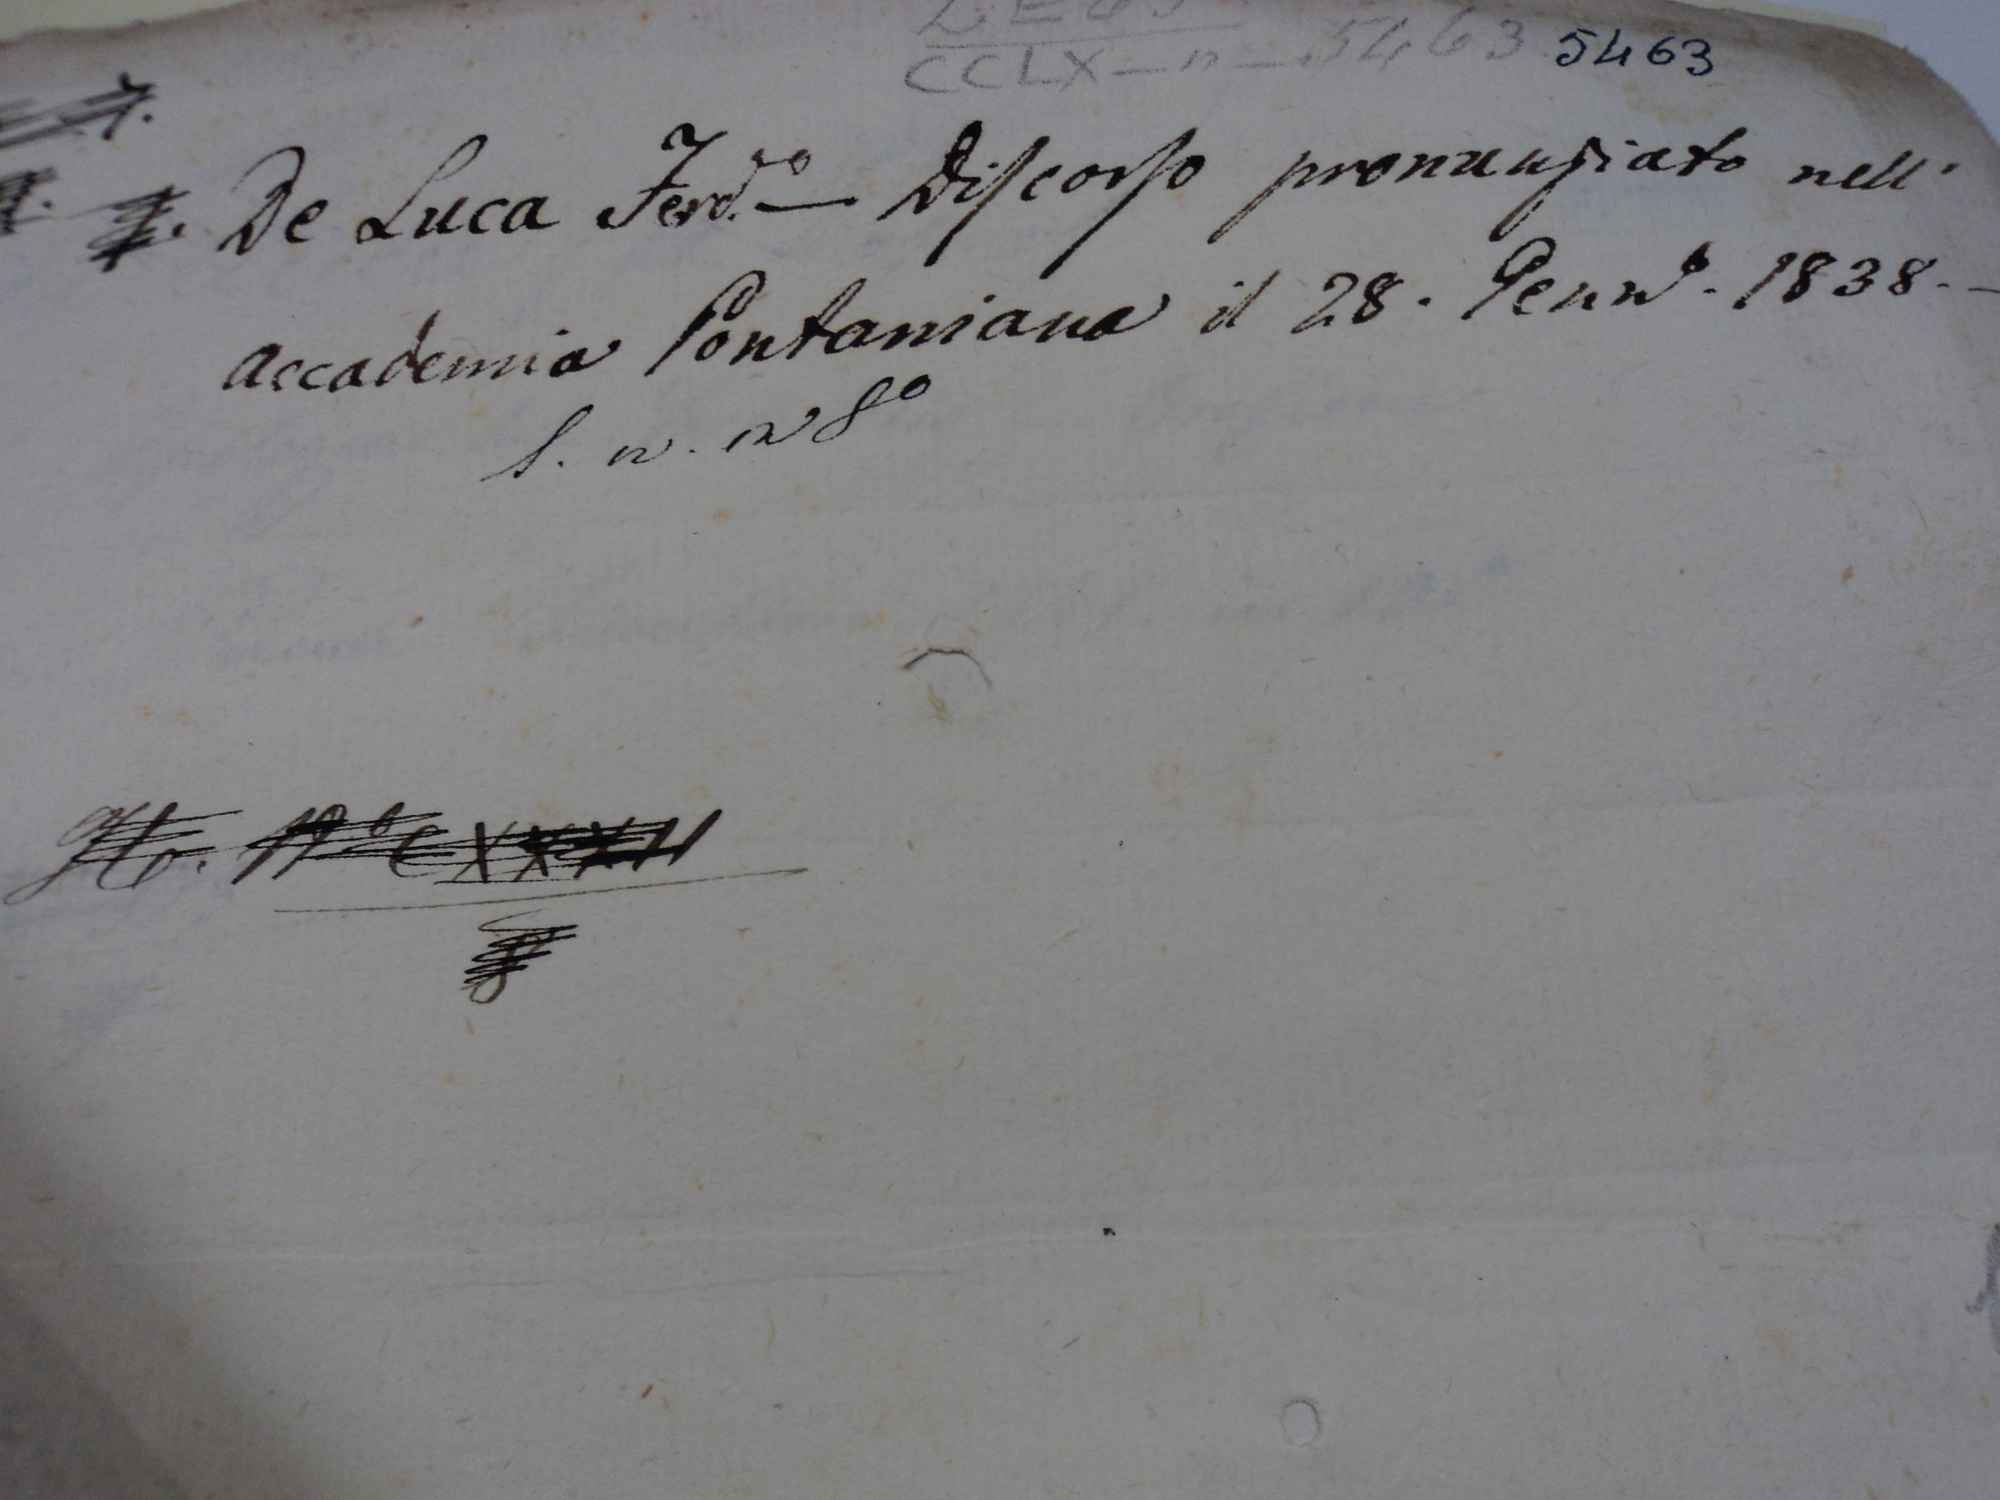 CCLX - n - 5463 5463
De Luca Ferd.do — Discorso pronunziato nell'
accademia Pontaniana il 28. Genn.o 1838. -
S. n. in 8o